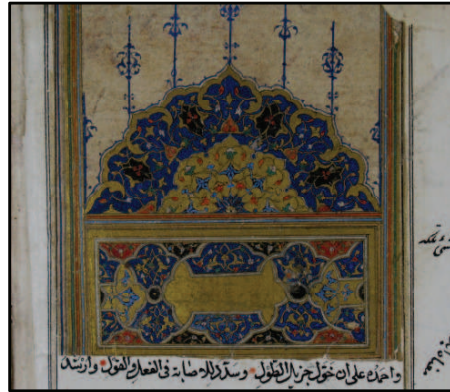 واحمده على ان خول جزيل الطول • وسدد للاصابة فى الفعل والقول • وارشد